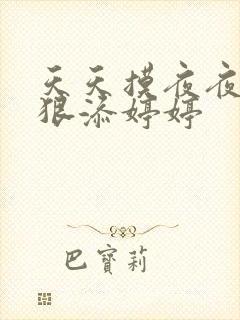 天天摸夜夜
狠添婷婷
巴寶莉